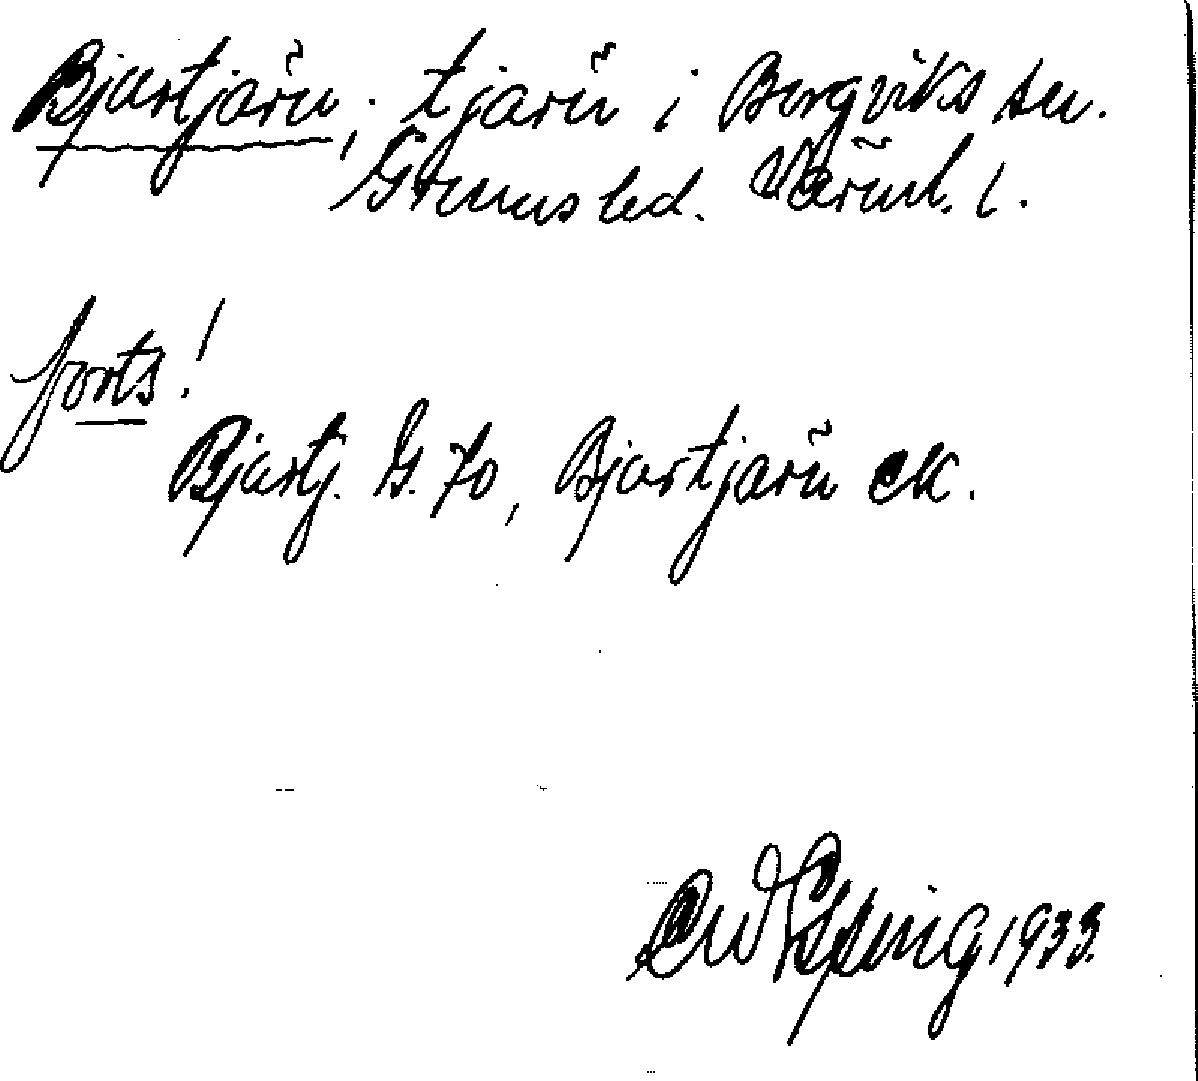 Bjartjärn, tjärn i Borgviks sn.
Grums hed. Värml. l.
forts!
Bjartj. G. 70, Bjartjärn ek.
1933.